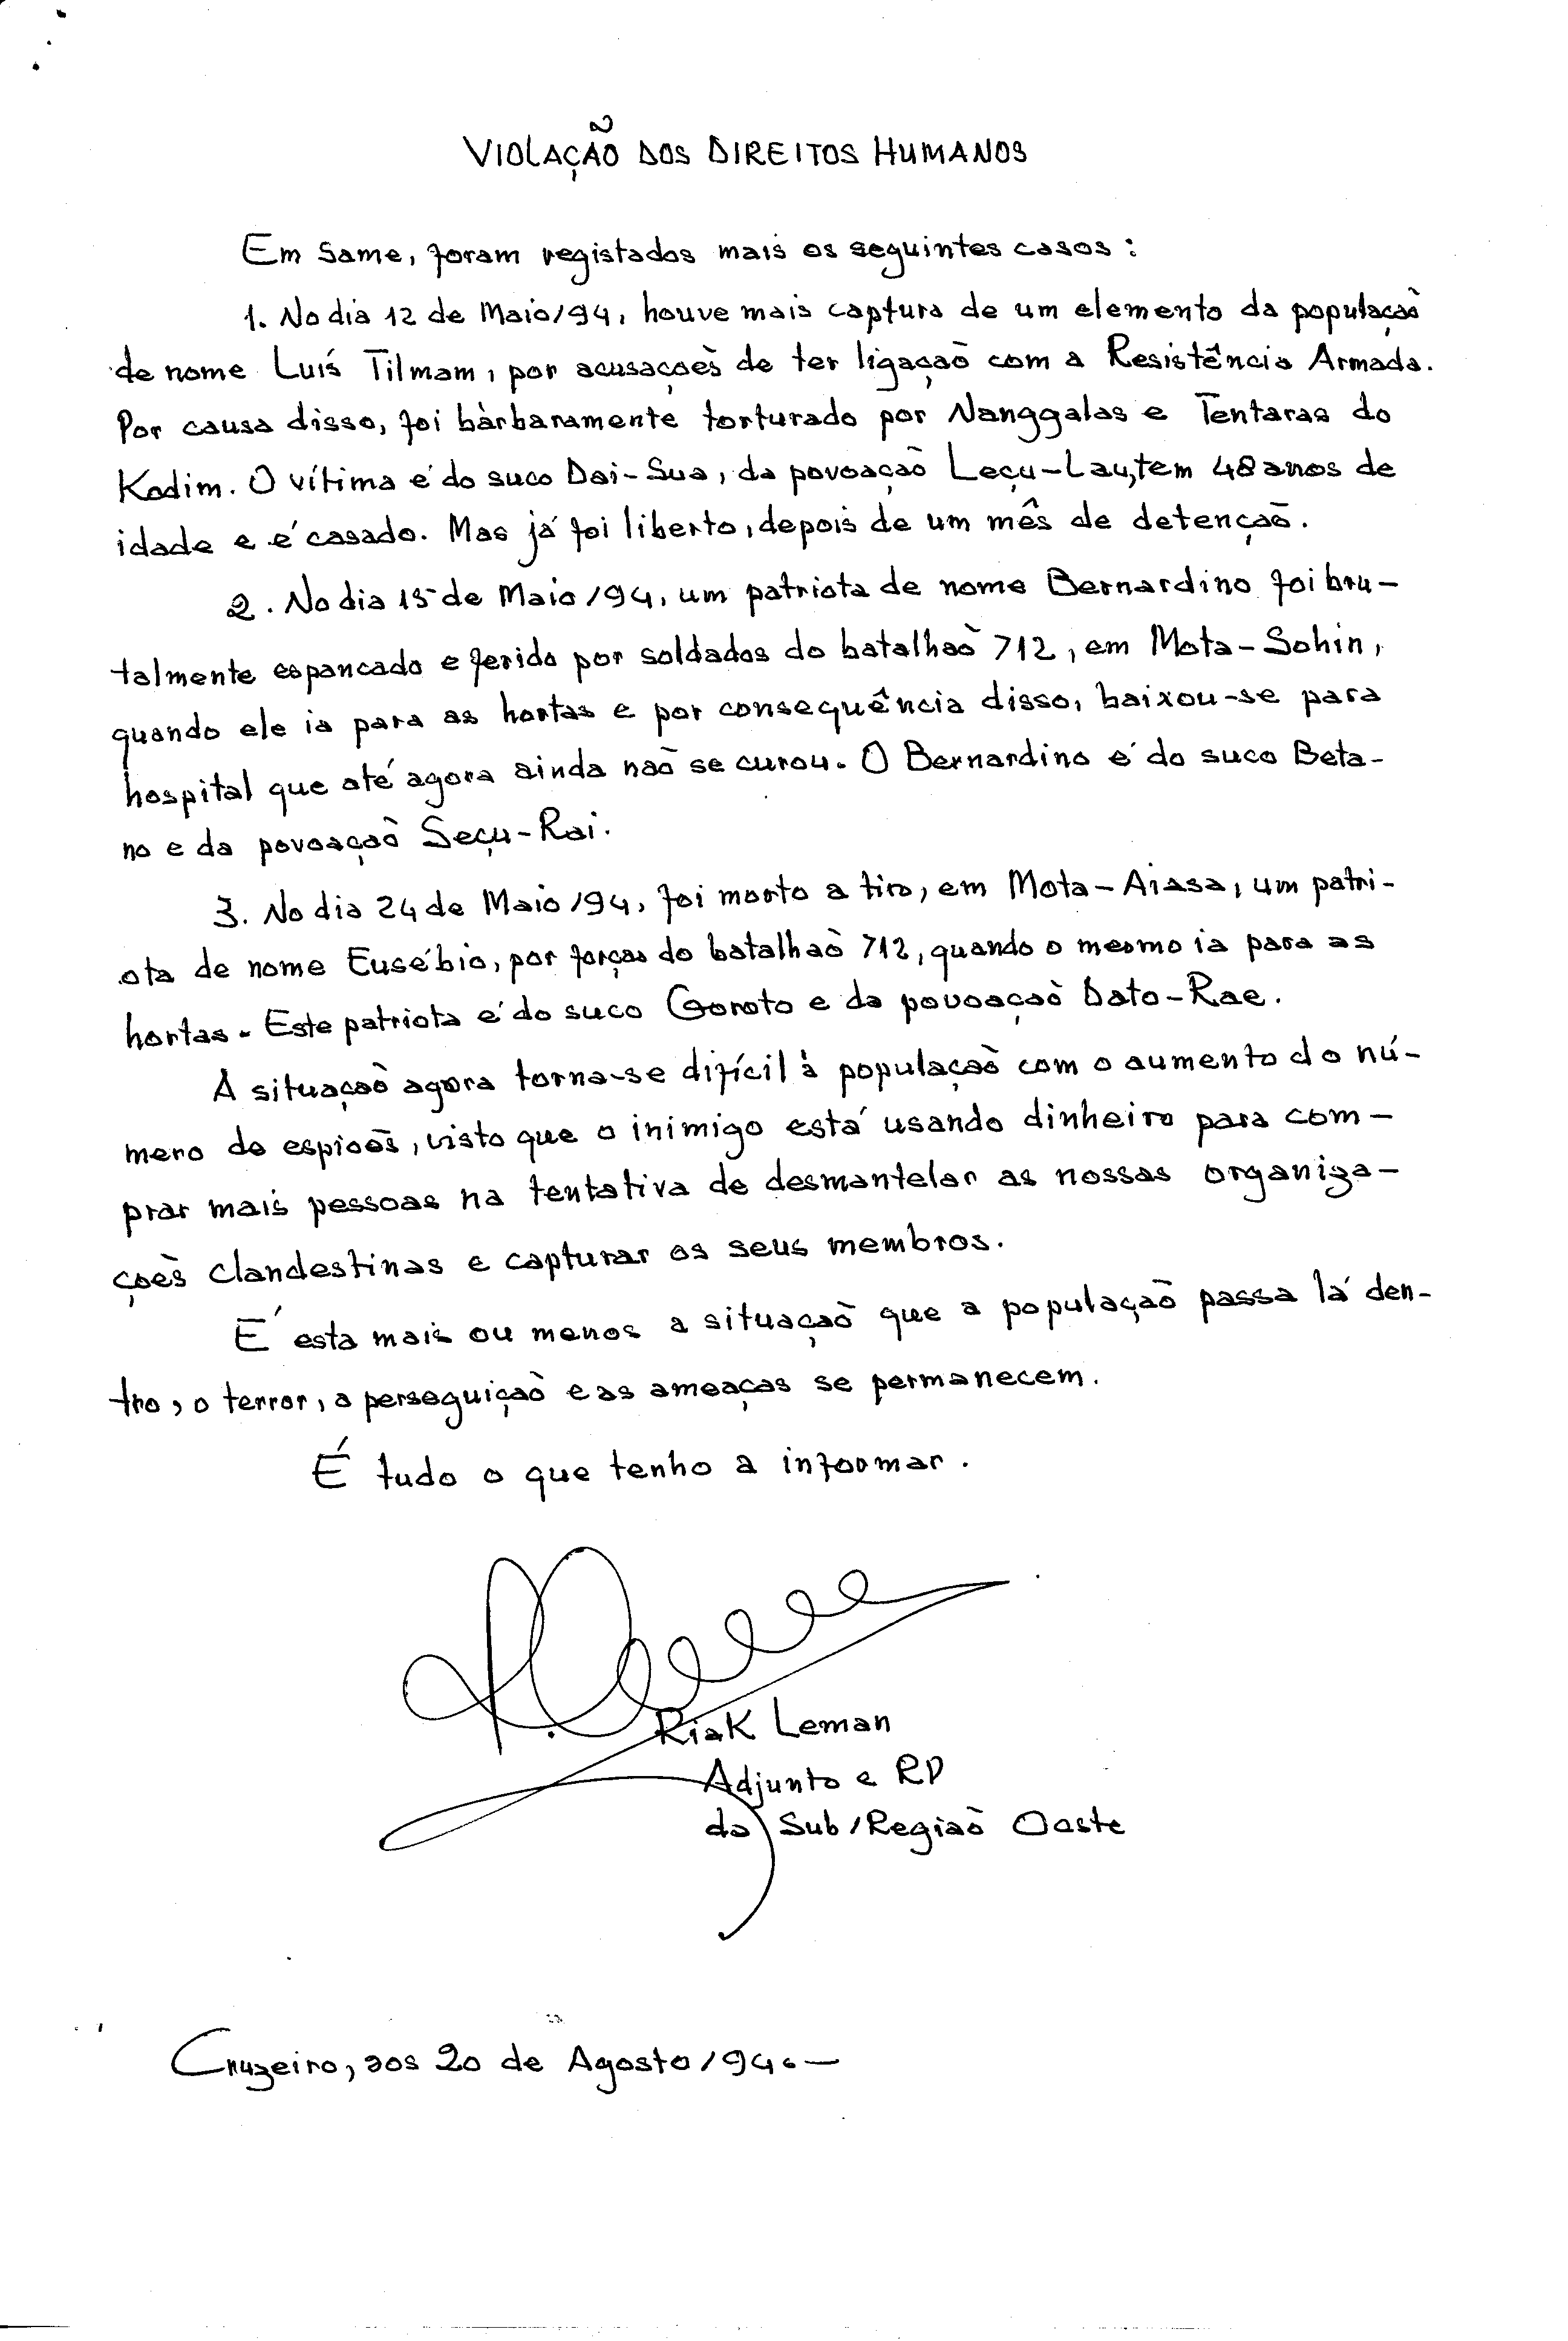 VIOLAÇÃO DOS DIREITOS HUMANOS
Em Same, foram registados mais os seguintes casos:
1. No dia 12 de Maio/94, houve mais captura de um elemento da população
de nome Luís Tilmam, por acusações de ter ligação com a Resistência Armada.
Por causa disso, foi bàrbaramente torturado por Nanggalas e Tentaras do
Kodim. O vítima é do suco Dai-Sua, da povoação Leçu-Lau, tem 48 anos de
idade e é casado. Mas já foi liberto, depois de um mês de detenção.
2. No dia 15 de Maio/94, um patriota de nome Bernardino foi bru-
talmente espancado e ferido por soldados do batalhão 712, em Mota-Sohin,
quando ele ia para as hortas e por consequência disso, baixou-se para
hospital que até agora ainda não se curou. O Bernardino é do suco Beta-
no e da povoação Seçu-Rai.
3. No dia 24 de Maio/94, foi morto a tiro, em Mota-Aiasa, um patri-
ota de nome Eusébio, por forças do batalhão 712, quando o mesmo ia para as
hortas. Este patriota é do suco Goroto e da povoação Dato-Rae.
A situação agora torna-se difícil à população com o aumento do nú-
mero de espiões, visto que o inimigo está usando dinheiro para com-
prar mais pessoas na tentativa de desmantelar as nossas organiza-
ções clandestinas e capturar os seus membros.
É esta mais ou menos a situação que a população passa lá den-
tro, o terror, a perseguição e as ameaças se permanecem.
É tudo o que tenho a informar.
Riak Leman
Adjunto e RP
da Sub/Região Oeste
Cruzeiro, aos 20 de Agosto/94.-